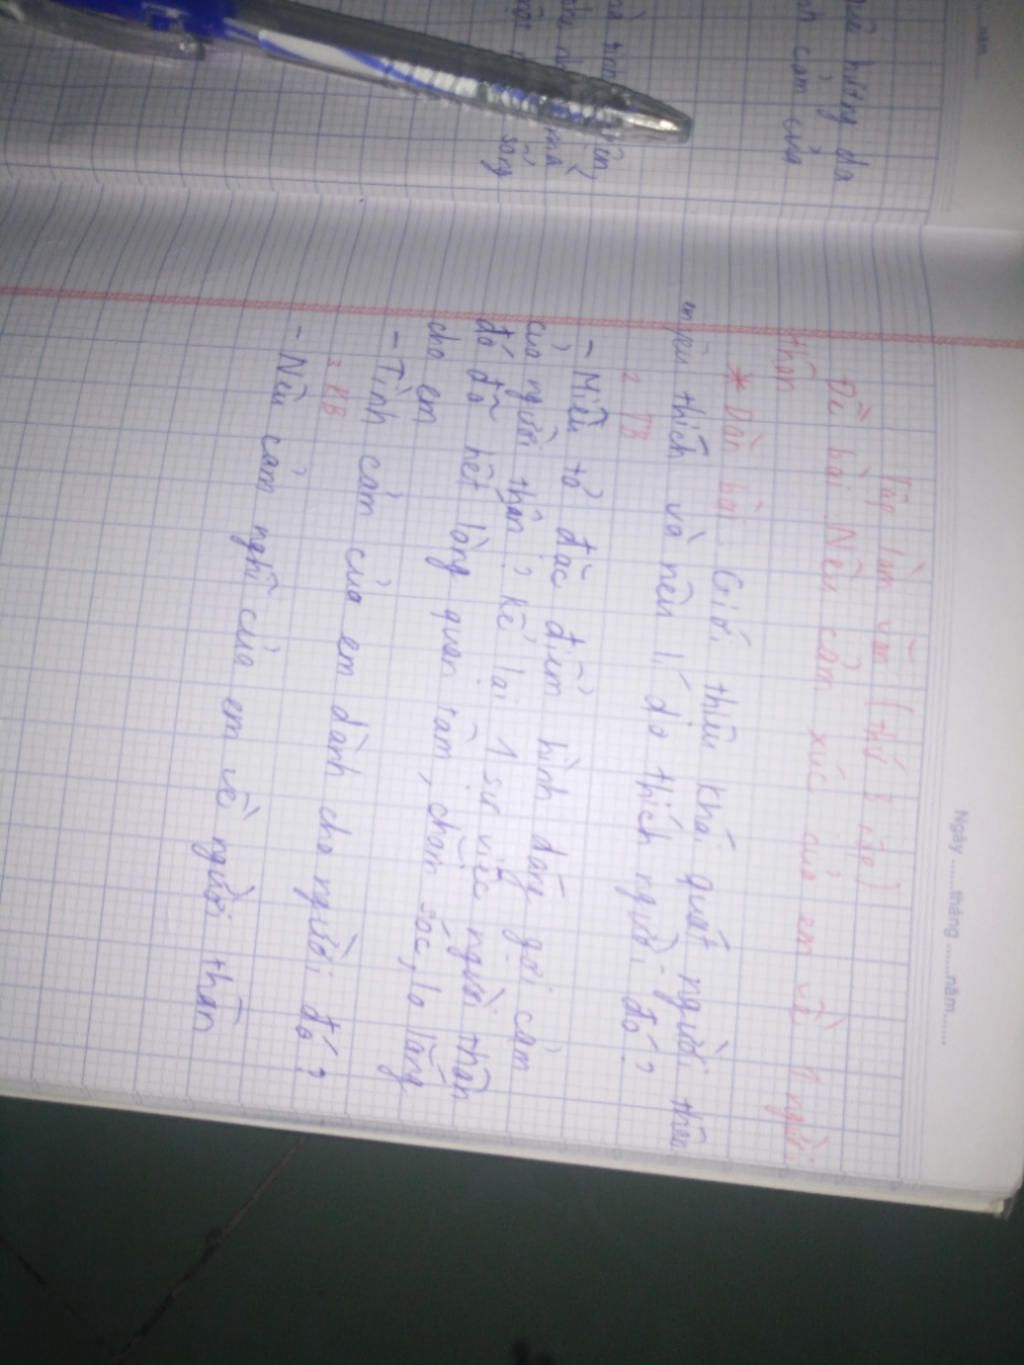 Ngày ........tháng ......năm.......
Tập làm văn (thứ 3 nộp)
Đề bài: Nêu cảm xúc của em về 1 người
thân
* Dàn bài: Giới thiệu khái quát người thân
thích và nêu lí do thích người đó?
= TB
- Miêu tả đặc điểm hình dáng gợi cảm
của người thân? kể lại 1 sự việc người thân
đó đã hết lòng quan tâm, chăm sóc, lo lắng
cho em
- Tình cảm của em dành cho người đó?
= KB
- Nêu cảm nghĩ của em về người thân
năm.......
quê hương đã
cảm của
sống